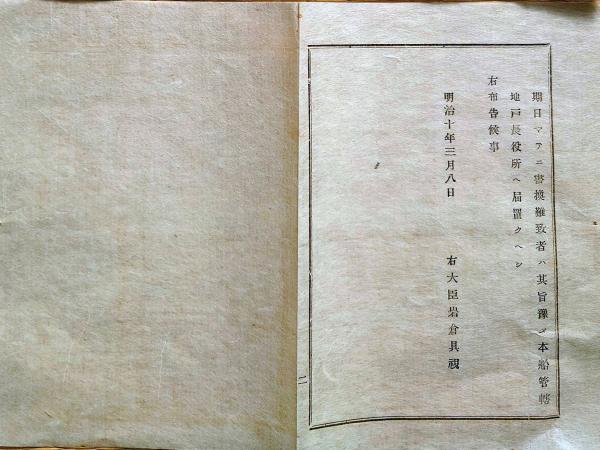 期日マテニ書換難致者ハ其旨豫メ本船管轄
地戸長役所ヘ届置クヘシ
右布告候事
明治十年三月八日
右大臣岩倉具視
二